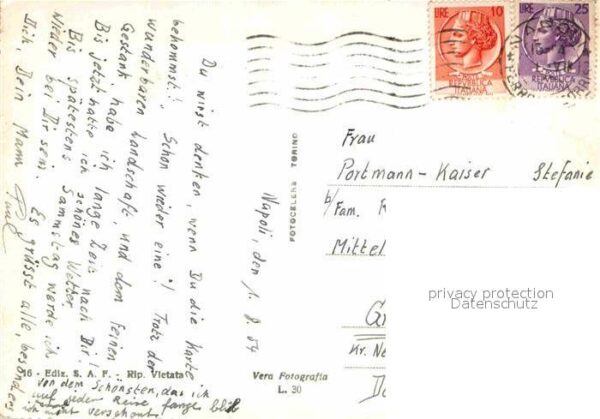 LIRE 10
LIRE 25
REPUBBLICA
ITALIANA
REPUBBLICA
ITALIANA
Napoli, den 1. 9. 54
Du wirst denken, wenn Du die Karte
bekommst: Schon wieder eine! Trotz der
wunderbaren Landschaft und dem feinen
Gestank habe ich lange Zeit nach Dir!
Bis jetzt hatte ich schönes Wetter.
Bis spätestens Sammstag werde ich
wieder bei Dir sein. Es grüsst alle, besonders
Dich, Dein Mann
Paul
von dem Schönsten, das ich
auf jeder Reise
ich nicht verschont
FOTOCELERE TORINO
Frau
Portmann-Kaiser Stefanie
b/Fam.
Mittel
Kr. Ne
privacy protection
Datenschutz
36 - Ediz. S. A. F. - Rip. Vietata
Vera Fotografia
L. 30